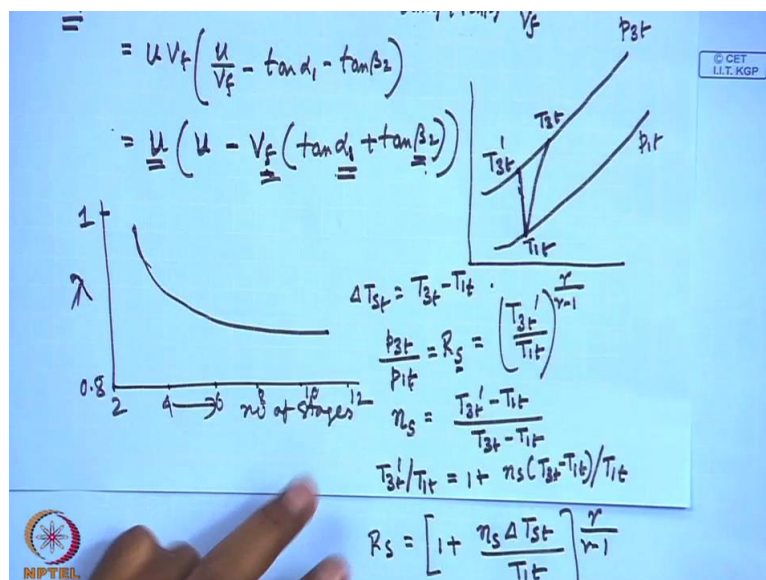 = u V_f ( u/V_f - tan α₁ - tan β₂ )
= u ( u - V_f ( tan α₁ + tan β₂ ) )
V_f
P3t
P1t
T3t
T3t'
T1t
© CET
I.I.T. KGP
1
λ
0.8
2 4 6 8 10 12
no of stages
ΔTst = T3t - T1t .
P3t/P1t = Rs = ( T3t'/T1t )^(γ/(γ-1))
ηs = (T3t' - T1t)/(T3t - T1t)
T3t'/T1t = 1 + ηs (T3t - T1t)/T1t
Rs = [ 1 + ηs ΔTst/T1t ]^(γ/(γ-1))
NPTEL